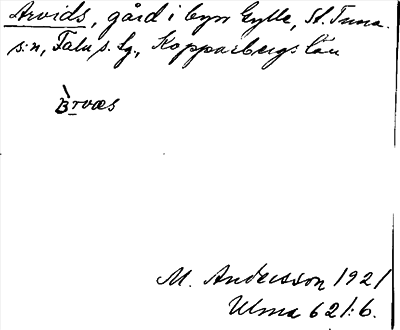 Arvids, gård i byn Gylle, St. Tuna
s:n, Falu s. lg., Kopparbergs län
M. Andersson 1921
Ulma 621:6.